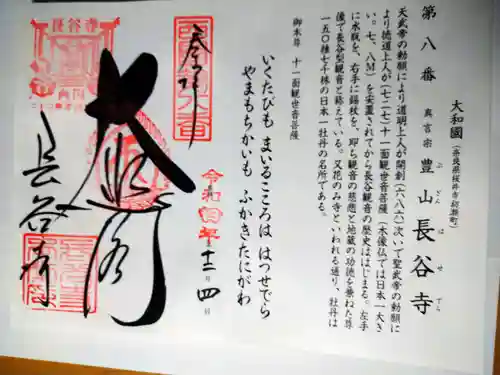 第八番
大和國（奈良県桜井市初瀬町）
真言宗 豊山 長谷寺
ぶざん はせでら
天武帝の勅願により道明上人が開創（六八六）次いで聖武帝の勅願に
より徳道上人が（七二七）十一面観世音菩薩（木像仏では日本一大き
い。七、八M）を安置されてから長谷観音の歴史ははじまる。左手
に水瓶を、右手に錫杖を、即ち観音の慈悲と地蔵の功徳を兼ねた尊
像で長谷型観音と称えている。又花のみ寺といわれる通り、牡丹は
一五〇種七千株の日本一牡丹の名所である。
御本尊 十一面観世音菩薩
いくたびも まいるこころは はつせでら
やまもちかいも ふかきたにがわ
奉拝
令和四年十二月四日
大悲閣
長谷寺
長谷寺